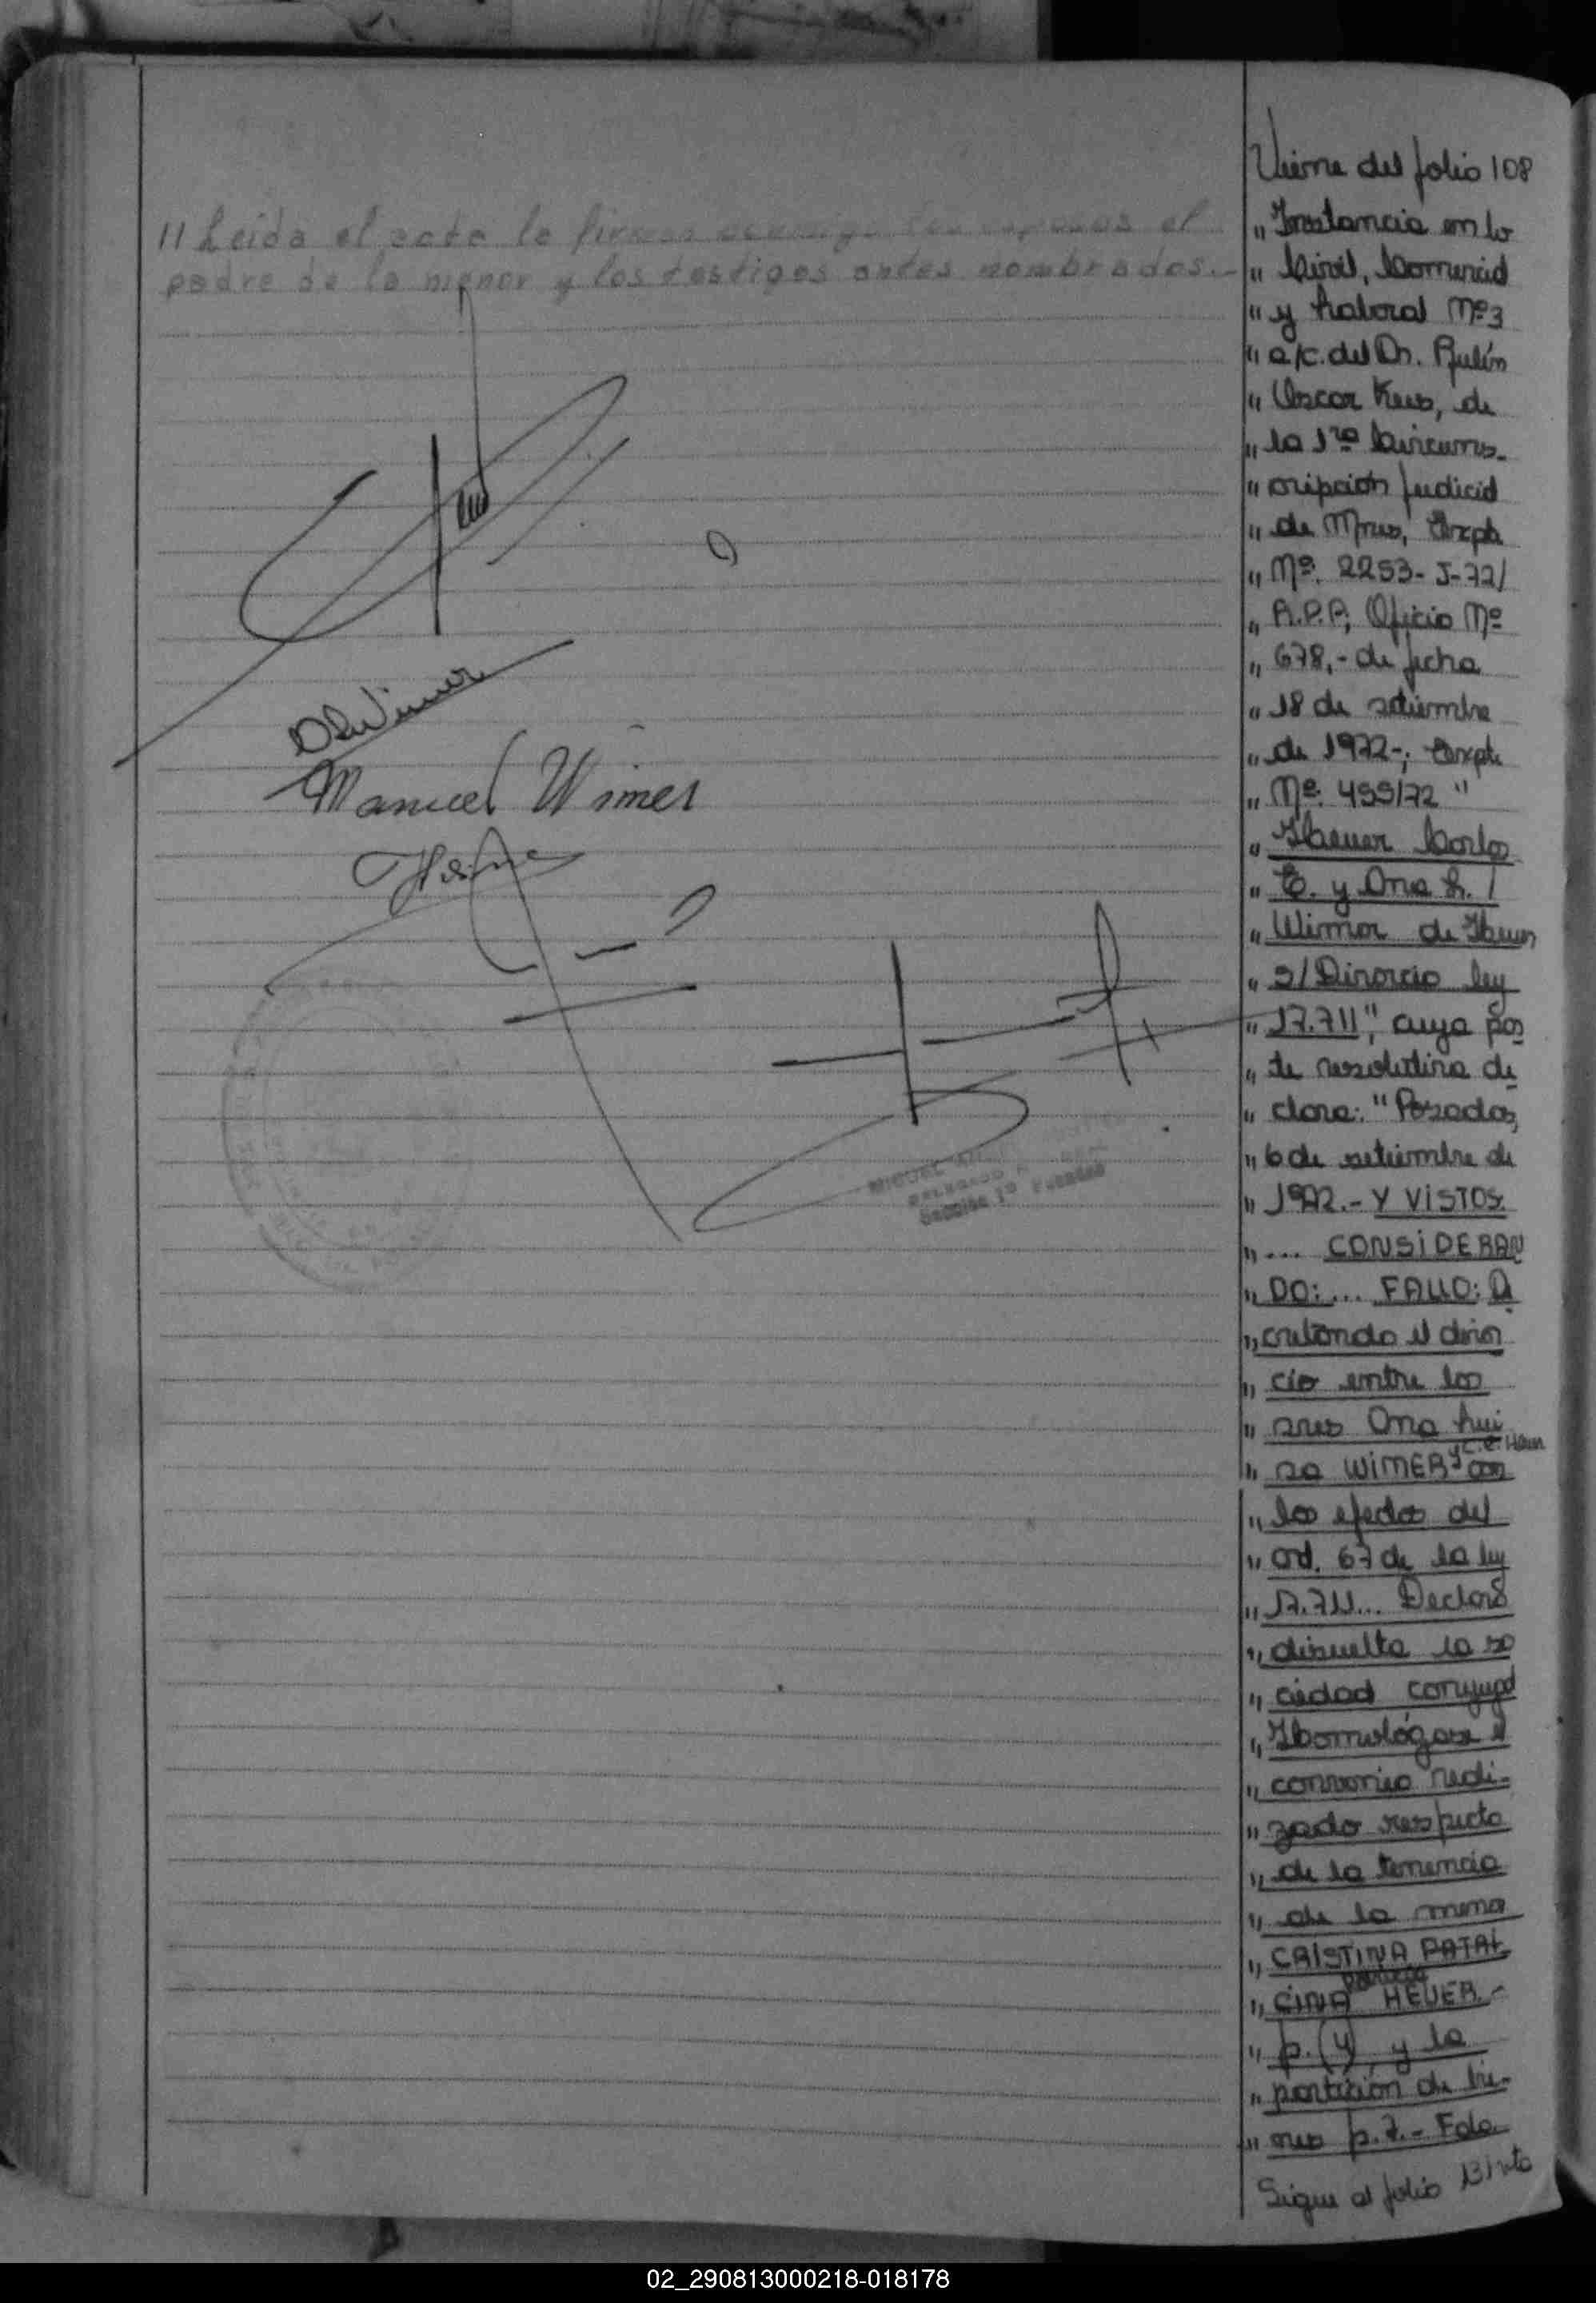 // Leída el acta la firman conmigo los esposos el
padre de la menor y los testigos antes nombrados.-
Manuel Wimer
MIGUEL
Sección 1ª Posadas
Viene del folio 108
" Instancia en lo
" Civil, Comercial
" y Laboral Nº 3
" a/c. del Dr. Rubén
" Oscar Keus, de
" la 1ra Circuns-
" cripción Judicial
" de Mnes, Expte
" Nº 2253-J-72/
" R.P.P, Oficio Nº
" 678,- de fecha
" 18 de setiembre
" de 1972-; Expte
" Nº 459/72 "
" Heuer Carlos
" E. y Ana L. /
" Wimer de Heuer
" s/Divorcio ley
" 17.711", cuya par
" te resolutiva de
" clara: "Posadas,
" 6 de setiembre de
" 1972.- Y VISTOS:
" ... CONSIDERAN
" DO: ... FALLO: De
" cretando el divor
" cio entre los
" sres Ana Lui
" sa WIMER y C.E. Heuer con
" los efectos del
" art. 67 de la ley
" 17.711... Declara
" disuelta la so
" ciedad conyugal
" Homológase el
" convenio reali-
" zado respecto
" de la tenencia
" de la menor
" CRISTINA PATRI
" CINA Patricia HEUER.-
" p. (4), y la
" partición de bie-
" nes p. 7.- Fdo.
Sigue al folio 131 vto
02_290813000218-018178